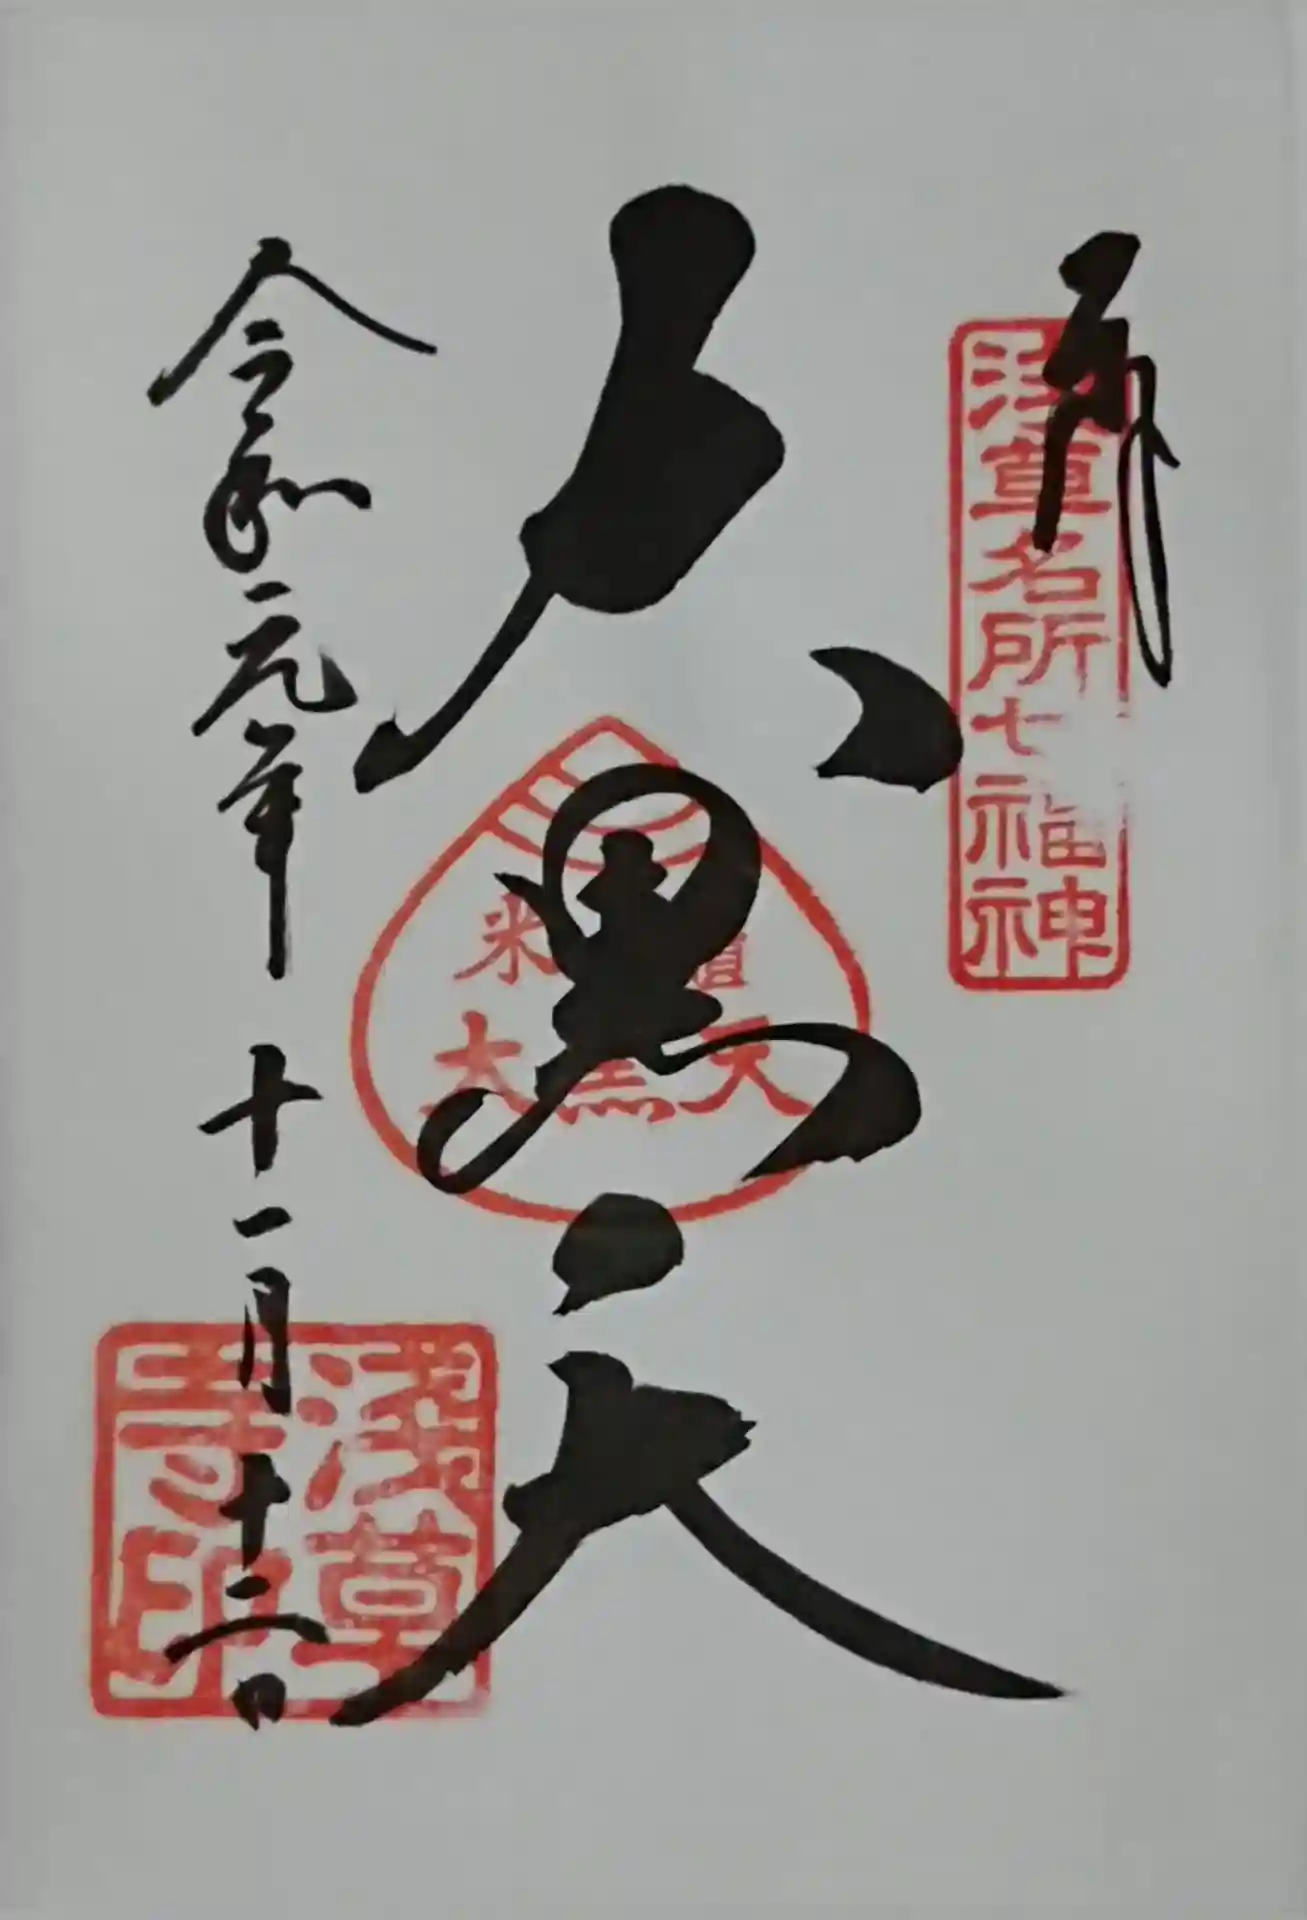 奉拝
浅草名所七福神
大黒天
米櫃
大黒天
令和元年 十一月十二日
浅草
寺印